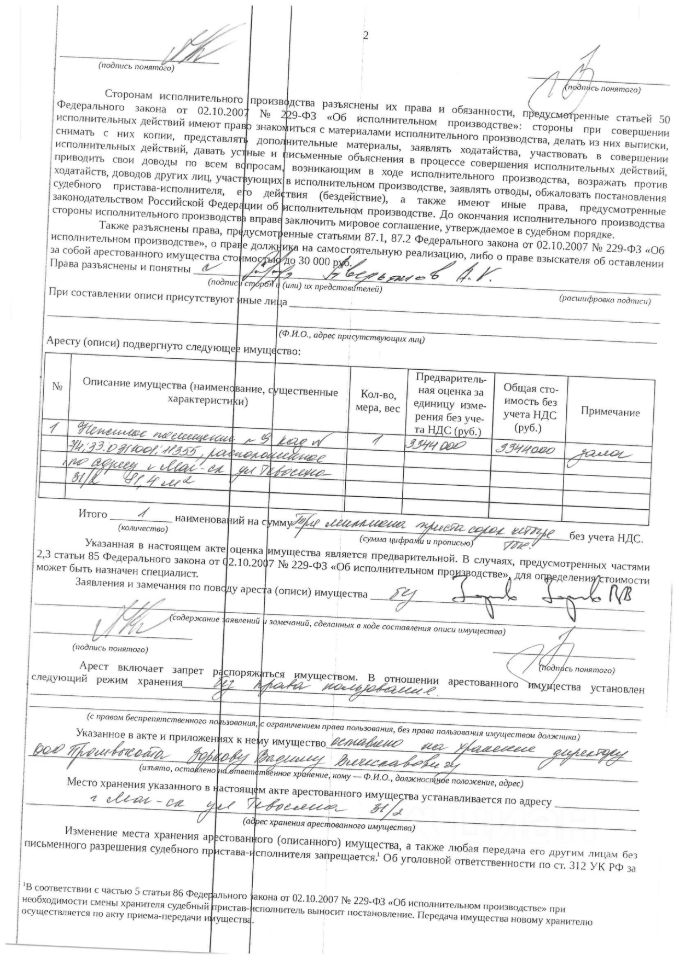 2
(подпись понятого)
(подпись понятого)
Сторонам исполнительного производства разъяснены их права и обязанности, предусмотренные статьей 50
Федерального закона от 02.10.2007 № 229-ФЗ «Об исполнительном производстве»: стороны при совершении
исполнительных действий имеют право знакомиться с материалами исполнительного производства, делать из них выписки,
снимать с них копии, представлять дополнительные материалы, заявлять ходатайства, участвовать в совершении
исполнительных действий, давать устные и письменные объяснения в процессе совершения исполнительных действий,
приводить свои доводы по всем вопросам, возникающим в ходе исполнительного производства, возражать против
ходатайств, доводов других лиц, участвующих в исполнительном производстве, заявлять отводы, обжаловать постановления
судебного пристава-исполнителя, его действия (бездействие), а также имеют иные права, предусмотренные
законодательством Российской Федерации об исполнительном производстве. До окончания исполнительного производства
стороны исполнительного производства вправе заключить мировое соглашение, утверждаемое в судебном порядке.
Также разъяснены права, предусмотренные статьями 87.1, 87.2 Федерального закона от 02.10.2007 № 229-ФЗ «Об
исполнительном производстве», о праве должника на самостоятельную реализацию, либо о праве взыскателя об оставлении
за собой арестованного имущества стоимостью до 30 000 руб.
Права разъяснены и понятны
(подписи сторон и (или) их представителей) (расшифровка подписи)
При составлении описи присутствуют иные лица
(Ф.И.О., адрес присутствующих лиц)
Аресту (описи) подвергнуто следующее имущество:
№ Описание имущества (наименование, существенные характеристики) Кол-во, мера, вес Предварительная оценка за единицу измерения без учета НДС (руб.) Общая стоимость без учета НДС (руб.) Примечание
1 Нежилое помещение 1 3344000 3344000 залог
74:33:0311001:11355, расположенное
по адресу г Маг-ск ул Тевосяна
31/2 81,4 м2
Итого 1 наименований на сумму Три миллиона триста сорок четыре тыс. без учета НДС.
(количество) (сумма цифрами и прописью)
Указанная в настоящем акте оценка имущества является предварительной. В случаях, предусмотренных частями
2,3 статьи 85 Федерального закона от 02.10.2007 № 229-ФЗ «Об исполнительном производстве», для определения стоимости
может быть назначен специалист.
Заявления и замечания по поводу ареста (описи) имущества
(содержание заявлений и замечаний, сделанных в ходе составления описи имущества)
(подпись понятого)
(подпись понятого)
Арест включает запрет распоряжаться имуществом. В отношении арестованного имущества установлен
следующий режим хранения без права пользования
(с правом беспрепятственного пользования, с ограничением права пользования, без права пользования имуществом должника)
Указанное в акте и приложениях к нему имущество оставлено на хранение директору
ООО Промвысота Зоркову Вадиму Вячеславовичу
(изъято, оставлено на ответственное хранение, кому — Ф.И.О., должностное положение, адрес)
Место хранения указанного в настоящем акте арестованного имущества устанавливается по адресу
г Маг-ск ул Тевосяна 31/2
(адрес хранения арестованного имущества)
Изменение места хранения арестованного (описанного) имущества, а также любая передача его другим лицам без
письменного разрешения судебного пристава-исполнителя запрещается.1 Об уголовной ответственности по ст. 312 УК РФ за
1В соответствии с частью 5 статьи 86 Федерального закона от 02.10.2007 № 229-ФЗ «Об исполнительном производстве» при
необходимости смены хранителя судебный пристав-исполнитель выносит постановление. Передача имущества новому хранителю
осуществляется по акту приема-передачи имущества.